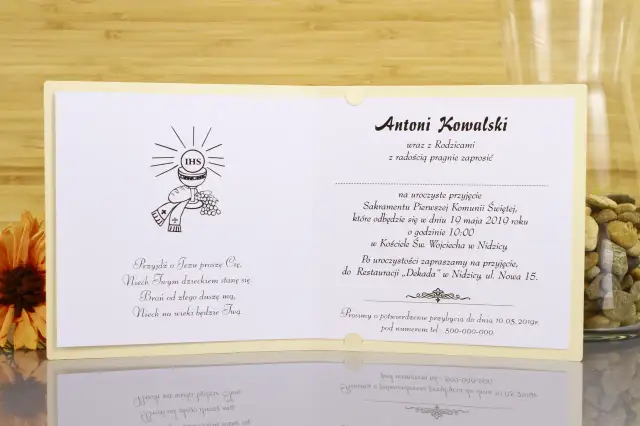 IHS
Przyjdź o Jezu proszę Cię,
Niech Twym dzieckiem stanę się.
Broń od złego duszę mą,
Niech na wieki będzie Twą.
Antoni Kowalski
wraz z Rodzicami
z radością pragnie zaprosić
na uroczyste przyjęcie
Sakramentu Pierwszej Komunii Świętej,
które odbędzie się w dniu 19 maja 2019 roku
o godzinie 10:00
w Kościele Św. Wojciecha w Nidzicy.
Po uroczystości zapraszamy na przyjęcie,
do Restauracji „Dekada” w Nidzicy, ul. Nowa 15.
Prosimy o potwierdzenie przybycia do dnia 10.05.2019r.
pod numerem tel - 500-000-000.